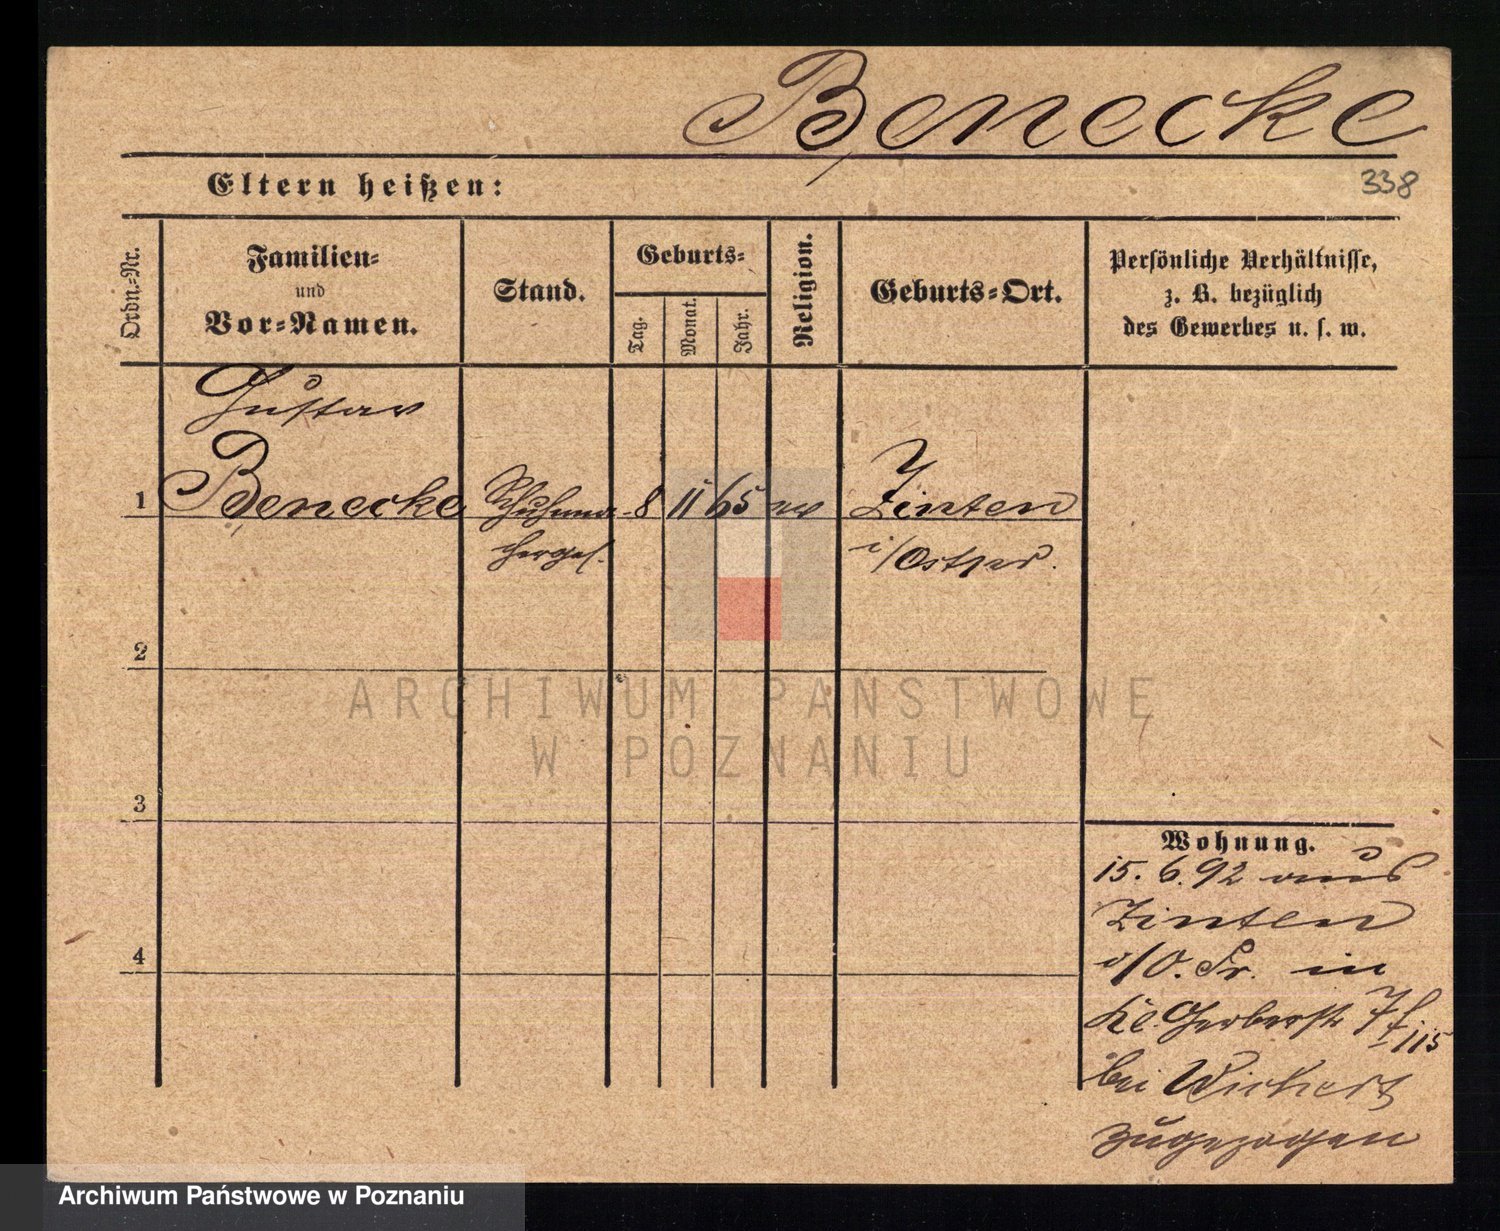 Benecke
338
Eltern heißen:
Ordn.-Nr.
Familien-
und
Vor-Namen.
Stand.
Geburts-
Tag.
Monat.
Jahr.
Religion.
Geburts-Ort.
Persönliche Verhältnisse,
z. B. bezüglich
des Gewerbes u. s. w.
Gustav
1 Benecke Schuhma- 8 11 65 ev Zinten
cherges. i/Ostpr.
2
3
4
Wohnung.
15. 6. 92 aus
Zinten
/O. Pr. in
Kl. Gerberstr 7
115
bei Wickert
zugezogen
ARCHIWUM PAŃSTWOWE
W POZNANIU
Archiwum Państwowe w Poznaniu